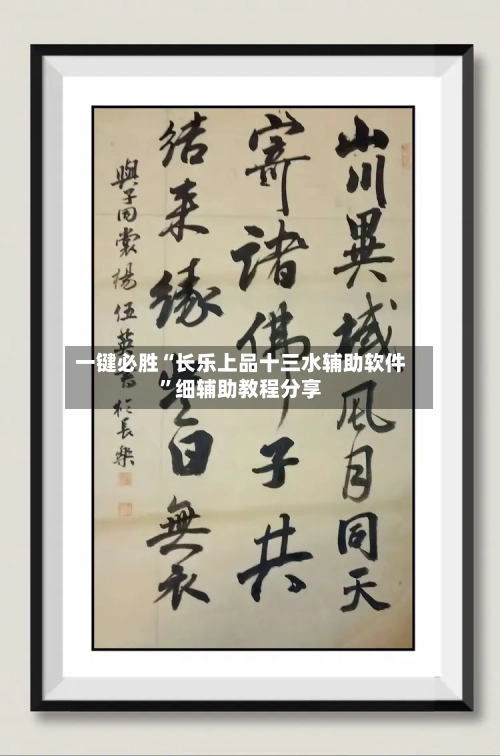 山川異域風月同天
寄諸佛子共
結来緣曰無衣
與子同裳楊伍英於長樂
一键必胜“长乐上品十三水辅助软件
”细辅助教程分享